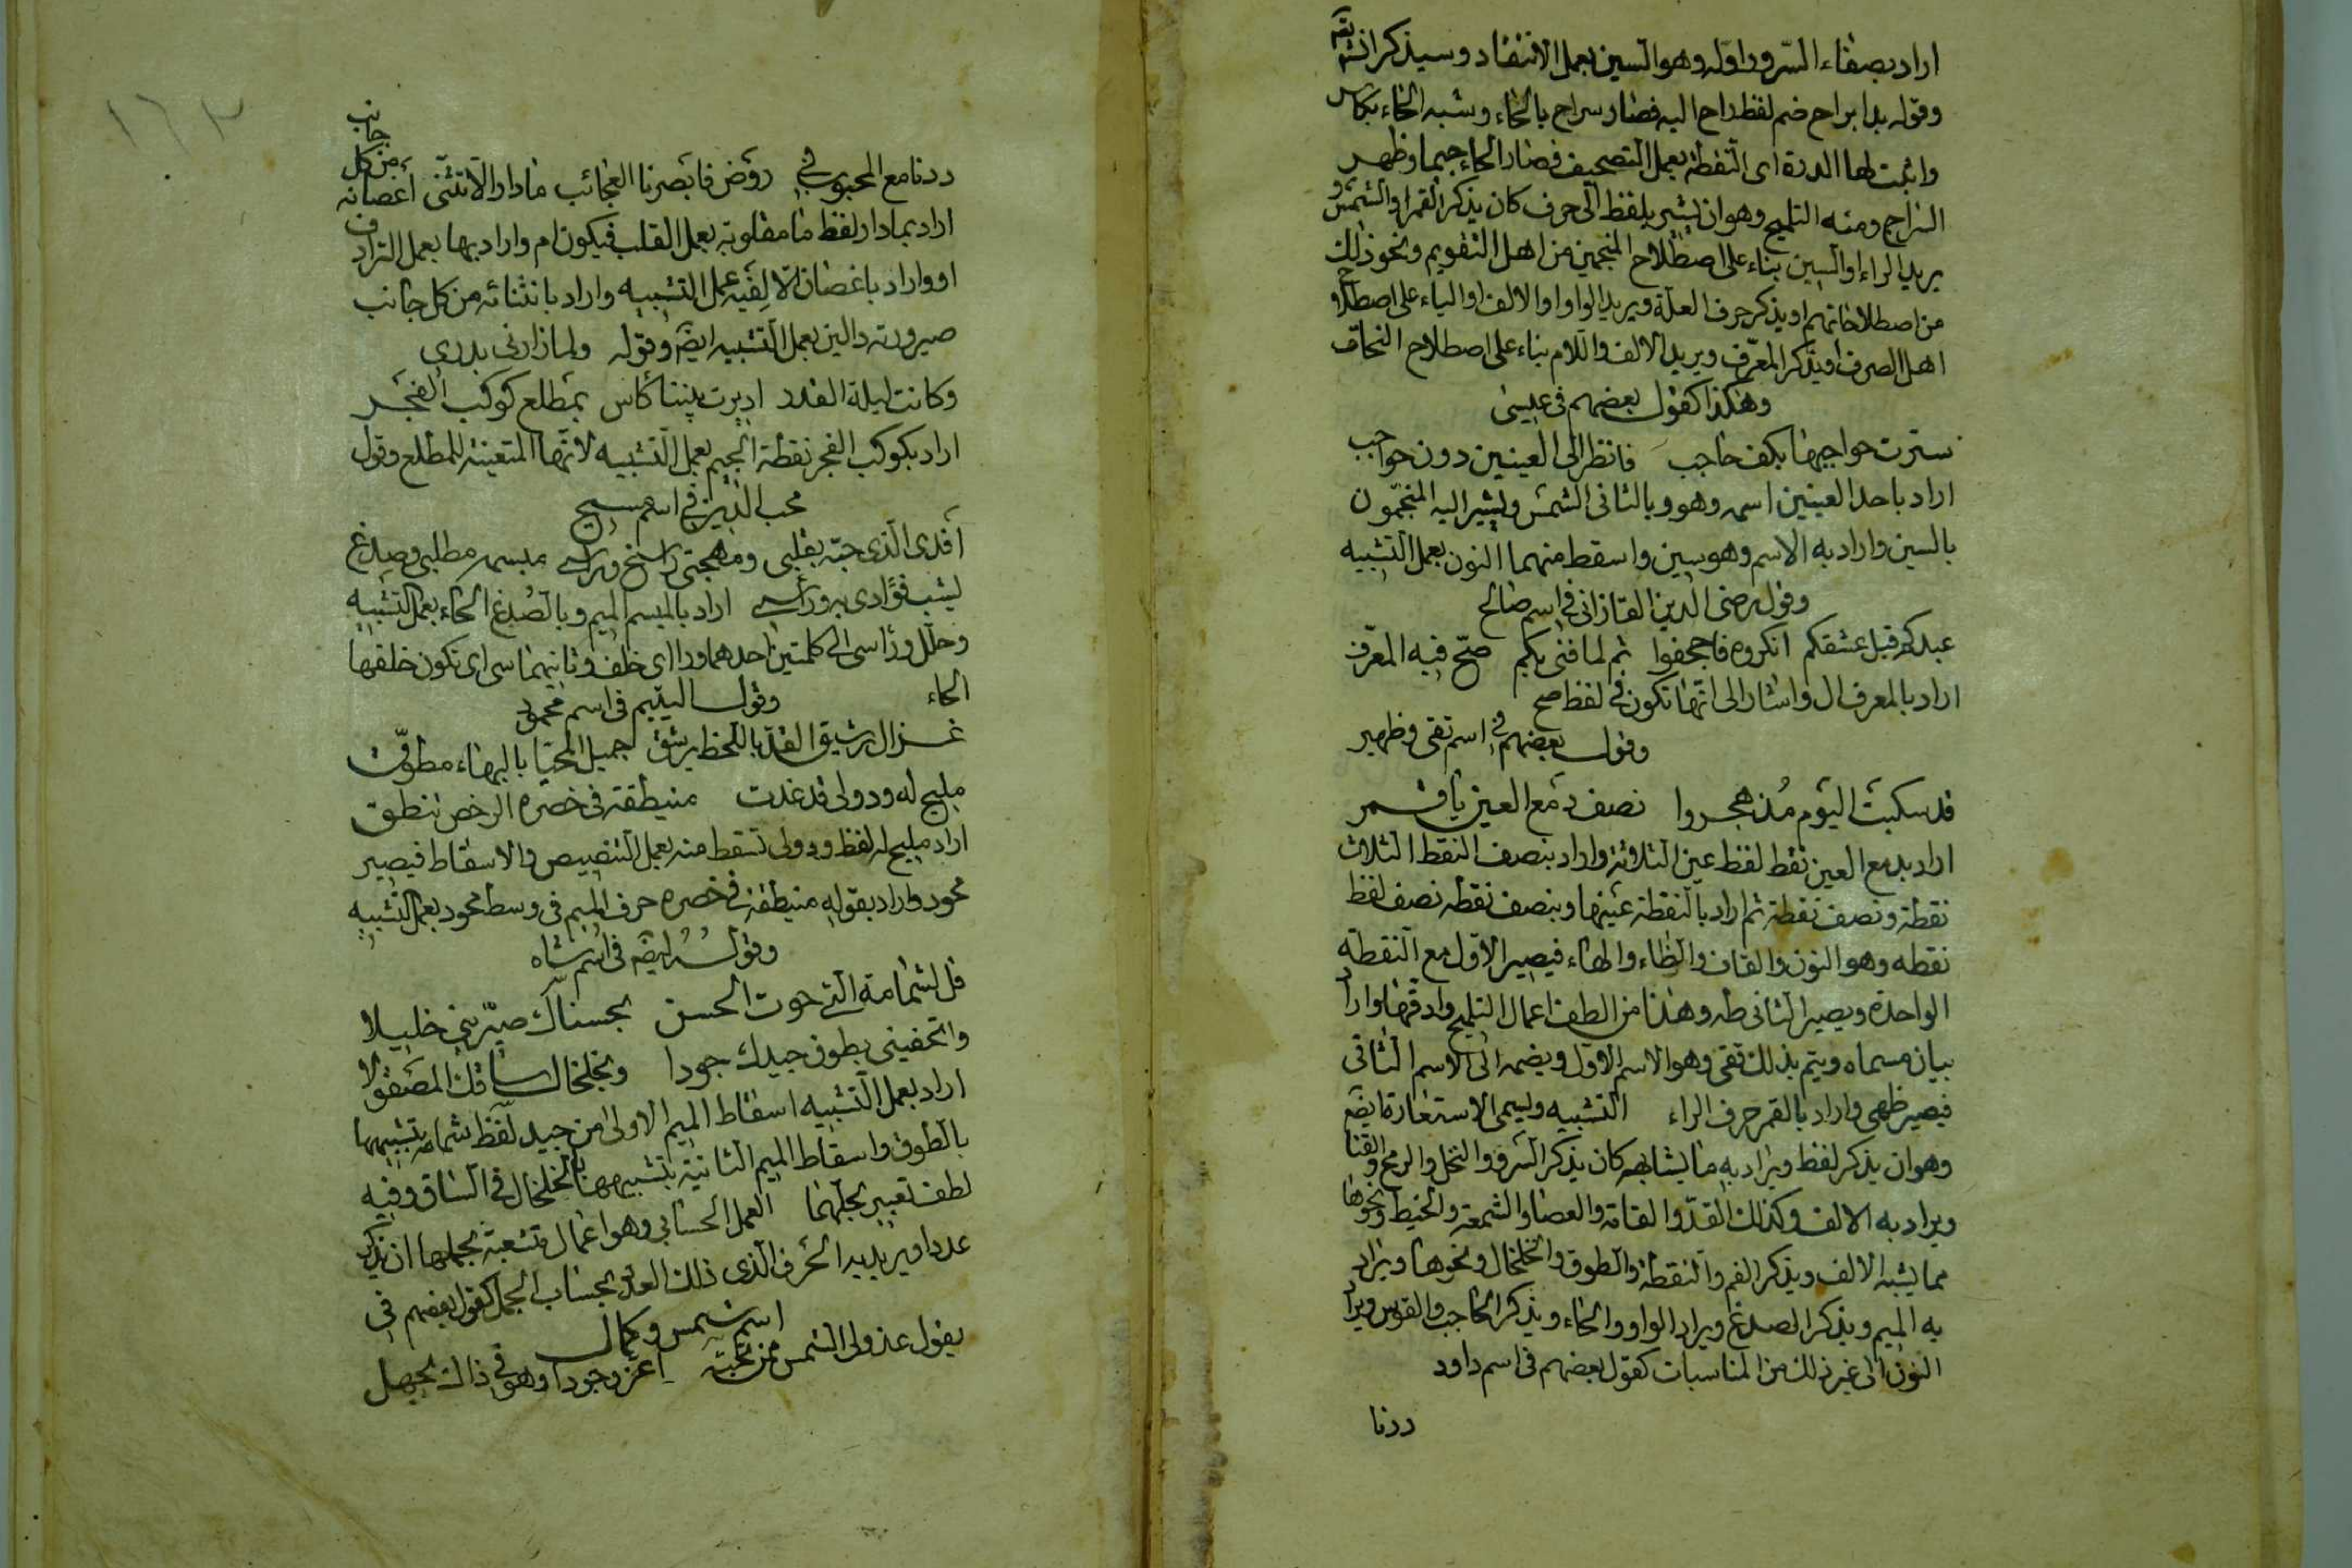 اراد بصفاء السرور اوله وهو السين بعمل الانتقاد وسيذكر ان شا
وقوله بدا براح ضم لفظ راح اليه فصار سراح بالحاء وشبه الحاء بكاس
واثبت لها الدرة اى النقطة بعمل التصحيف فصار الحاء جيما وظهر
السراج ومنه التلميح وهو ان يشير بلفظ الى حرف كان يذكر القمر او الشمس و
يريد الراء او السين بناء على اصطلاح المنجمين من اهل التقويم ونحو ذلك
من اصطلاحاتهم او يذكر حرف العلة ويريد الواو او الالف او الياء على اصطلاح
اهل الصرف او يذكر المعرّف ويريد الالف واللام بناء على اصطلاح النحاة
وهكذا كقول بعضهم فى عيسى
سترت حواجبها بكف حاجب فانظر الى العينين دون حواجب
اراد باحد العينين اسمه وهو وبالثانى الشمس ويشير اليه المنجمون
بالسين واراد به الاسم وهو سين واسقط منهما النون بعمل التشبيه
وقول رضى الدين القازانى فى اسم صالح
عبدكم قبل عشقكم انكروه فاجحفوا ثم لما فنى بكم صحّ فيه المعرّف
اراد بالمعرف ال واشار الى انها تكون فى لفظ صح
وقول بعضهم فى اسم تقى وظهير
قد سكبت اليوم مُذ هجروا نصف دمع العين يا قمر
اراد بدمع العين نقط لفظ عين الثلاثة واراد بنصف النقط الثلاث
نقطة ونصف نقطة ثم اراد بالنقطة عينها وبنصف نقطه نصف لفظ
نقطه وهو النون والقاف والطاء والهاء فيصير الاول مع النقطة
الواحدة ويصير الثانى طه وهذا من الطف اعمال التلميح وادقها واراد
بيان مسماه ويتم بذلك تقى وهو الاسم الاول ويضمه الى الاسم الثانى
فيصير ظهى واراد بالقمر حرف الراء التشبيه ويسمى الاستعارة ايضا
وهو ان يذكر لفظ ويراد به ما يشابهه كان يذكر السرو والنخل والرمح والقنا
ويراد به الالف وكذلك القدّ والقامة والعصا والشمعة والخيط ونحوها
مما يشبه الالف ويذكر الفم والنقطة والطوق والخلخال ونحوها ويراد
به الميم ويذكر الصدغ ويراد الواو والحاء ويذكر الحاجب والقوس ويراد
النون الى غير ذلك من المناسبات كقول بعضهم فى اسم داود
درنا
١٦٣
درنا مع المحبوب فى روض فابصرنا العجائب ما دار الا تثنّى اغصانه من كل جانب
اراد بما دار لفظ ما مقلوبة بعمل القلب فيكون ام واراد بها بعمل الترادف
او واراد باغصان الالفيه عمل التشبيه واراد بانثنائه من كل جانب
صيرورته دالين بعمل التشبيه ايضا وقوله ولما زارنى بدرى
وكانت ليلة القدر اديرت بيننا كأس بمطلع كوكب الفجر
اراد بكوكب الفجر نقطة الجيم بعمل التشبيه لانها المتعينة للمطلع وقول
محب الدين فى اسم مسيح
افدى الذى حبّه بقلبى ومهجتى راسخ وراسى مبسمه مطلبى وصدغ
يشب فؤادى به وراسى اراد بالمبسم الميم وبالصدغ الحاء بعمل التشبيه
وحلّل وراسى الى كلمتين احدهما ورا اى خلف وثانيهما سى اى تكون خلفها
الحاء وقول اليتيم فى اسم محمود
غزال رشيق القدّ باللحظ يرشق جميل المحيّا بالبهاء مطوّق
مليح له ود ولى قد غدت منيطقة فى خصره الرخص تنطق
اراد مليح له لفظ ود ولى تسقط منه بعمل التنصيص والاسقاط فيصير
محود واراد بقوله منيطقة فى خصره حرف الميم فى وسط محود بعمل التشبيه
وقوله ايضا فى اسم شاه
قل لشمامة التى حوت الحسن بحسناك صيّرينى خليلا
واتحفينى بطوق جيدك جودا وبخلخال ساقك المصقولا
اراد بعمل التشبيه اسقاط الميم الاولى من جيد لفظ شمامه بتشبيهها
بالطوق واسقاط الميم الثانية بتشبيهها بالخلخال فى الساق وفيه
لطف تعبير بحلّهما العمل الحسابى وهو اعمال متشعبة بجملها ان يذكر
عددا ويريد به الحرف الذى ذلك العدد بحساب الجمل كقول بعضهم فى
اسم شمس وكمال
يقول عذولى الشمس ممن تحبّه اعز وجودا وهو فى ذاك يجهل